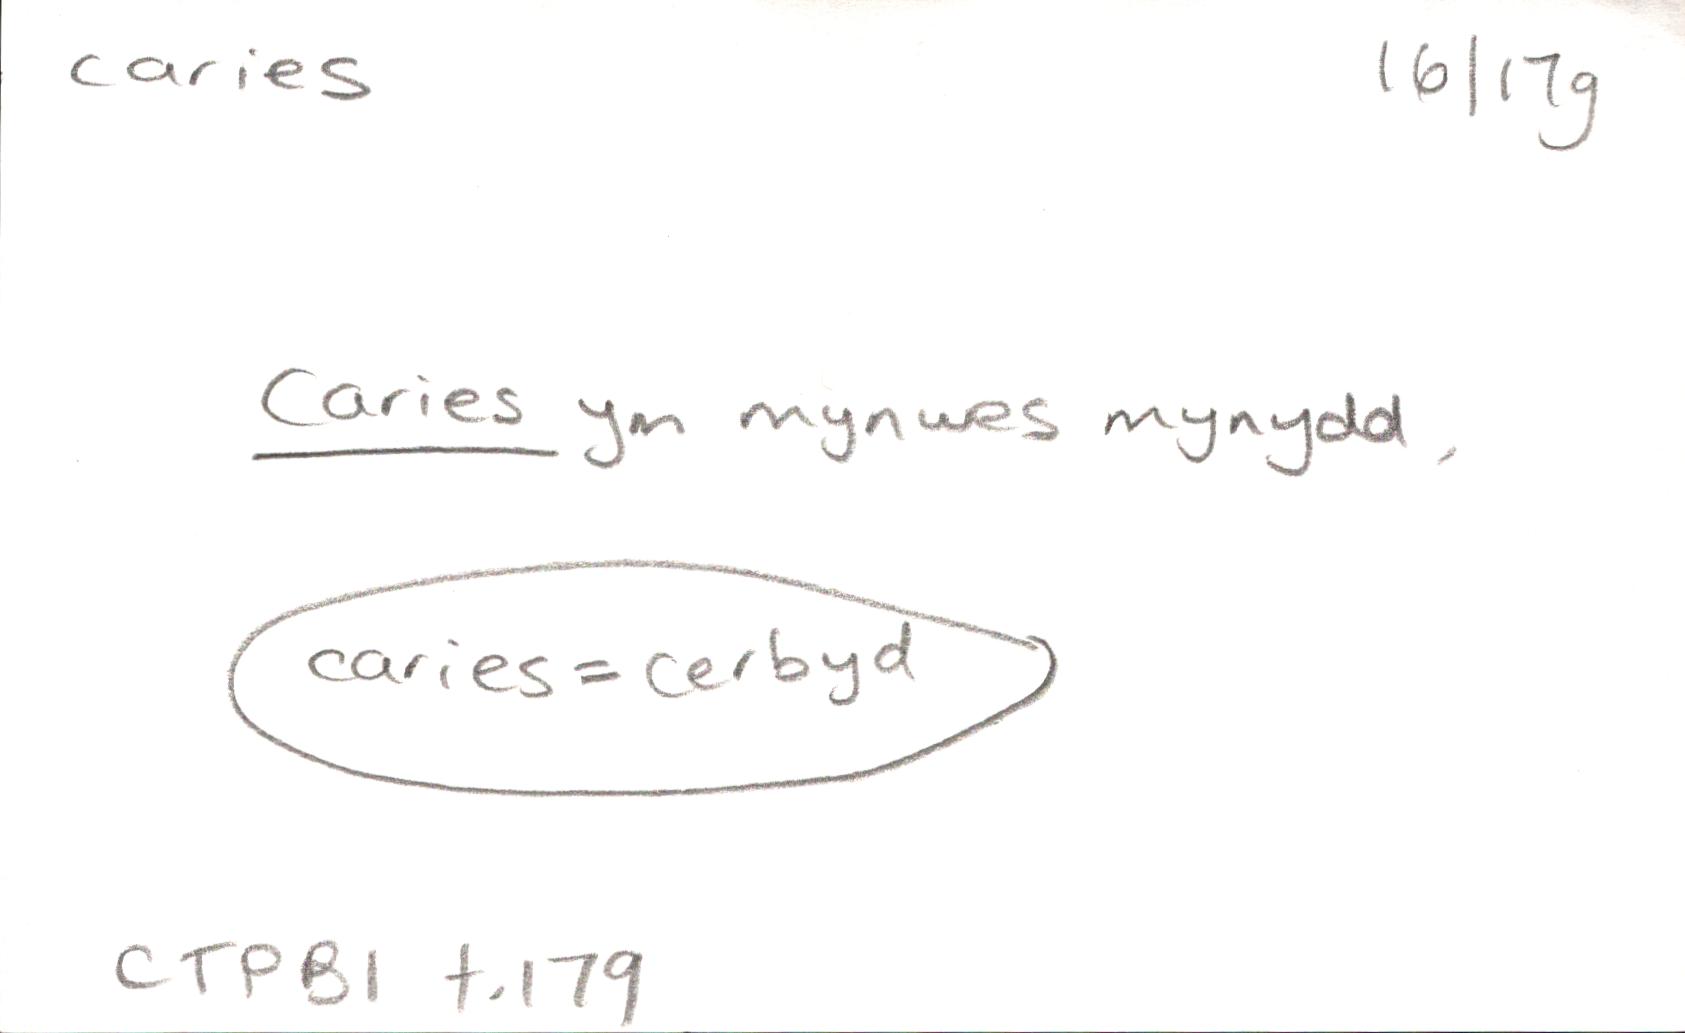 caries 16/17g
Caries ym mynwes mynydd,
caries = cerbyd
CTPB1 t.179